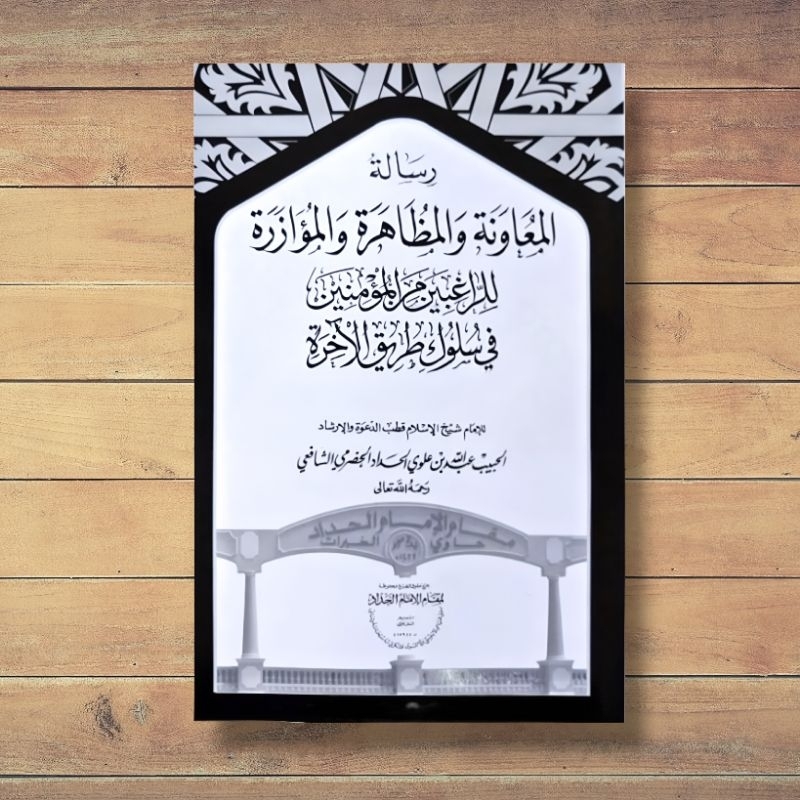 رسالة
المعاونة والمظاهرة والمؤازرة
للراغبين من المؤمنين
في سلوك طريق الآخرة
للإمام شيخ الإسلام قطب الدعوة والإرشاد
الحبيب عبد الله بن علوي الحداد الحضرمي الشافعي
رحمه الله تعالى
مقام الإمام الحداد
حاوي الخيرات
لمقام الإمام الحداد